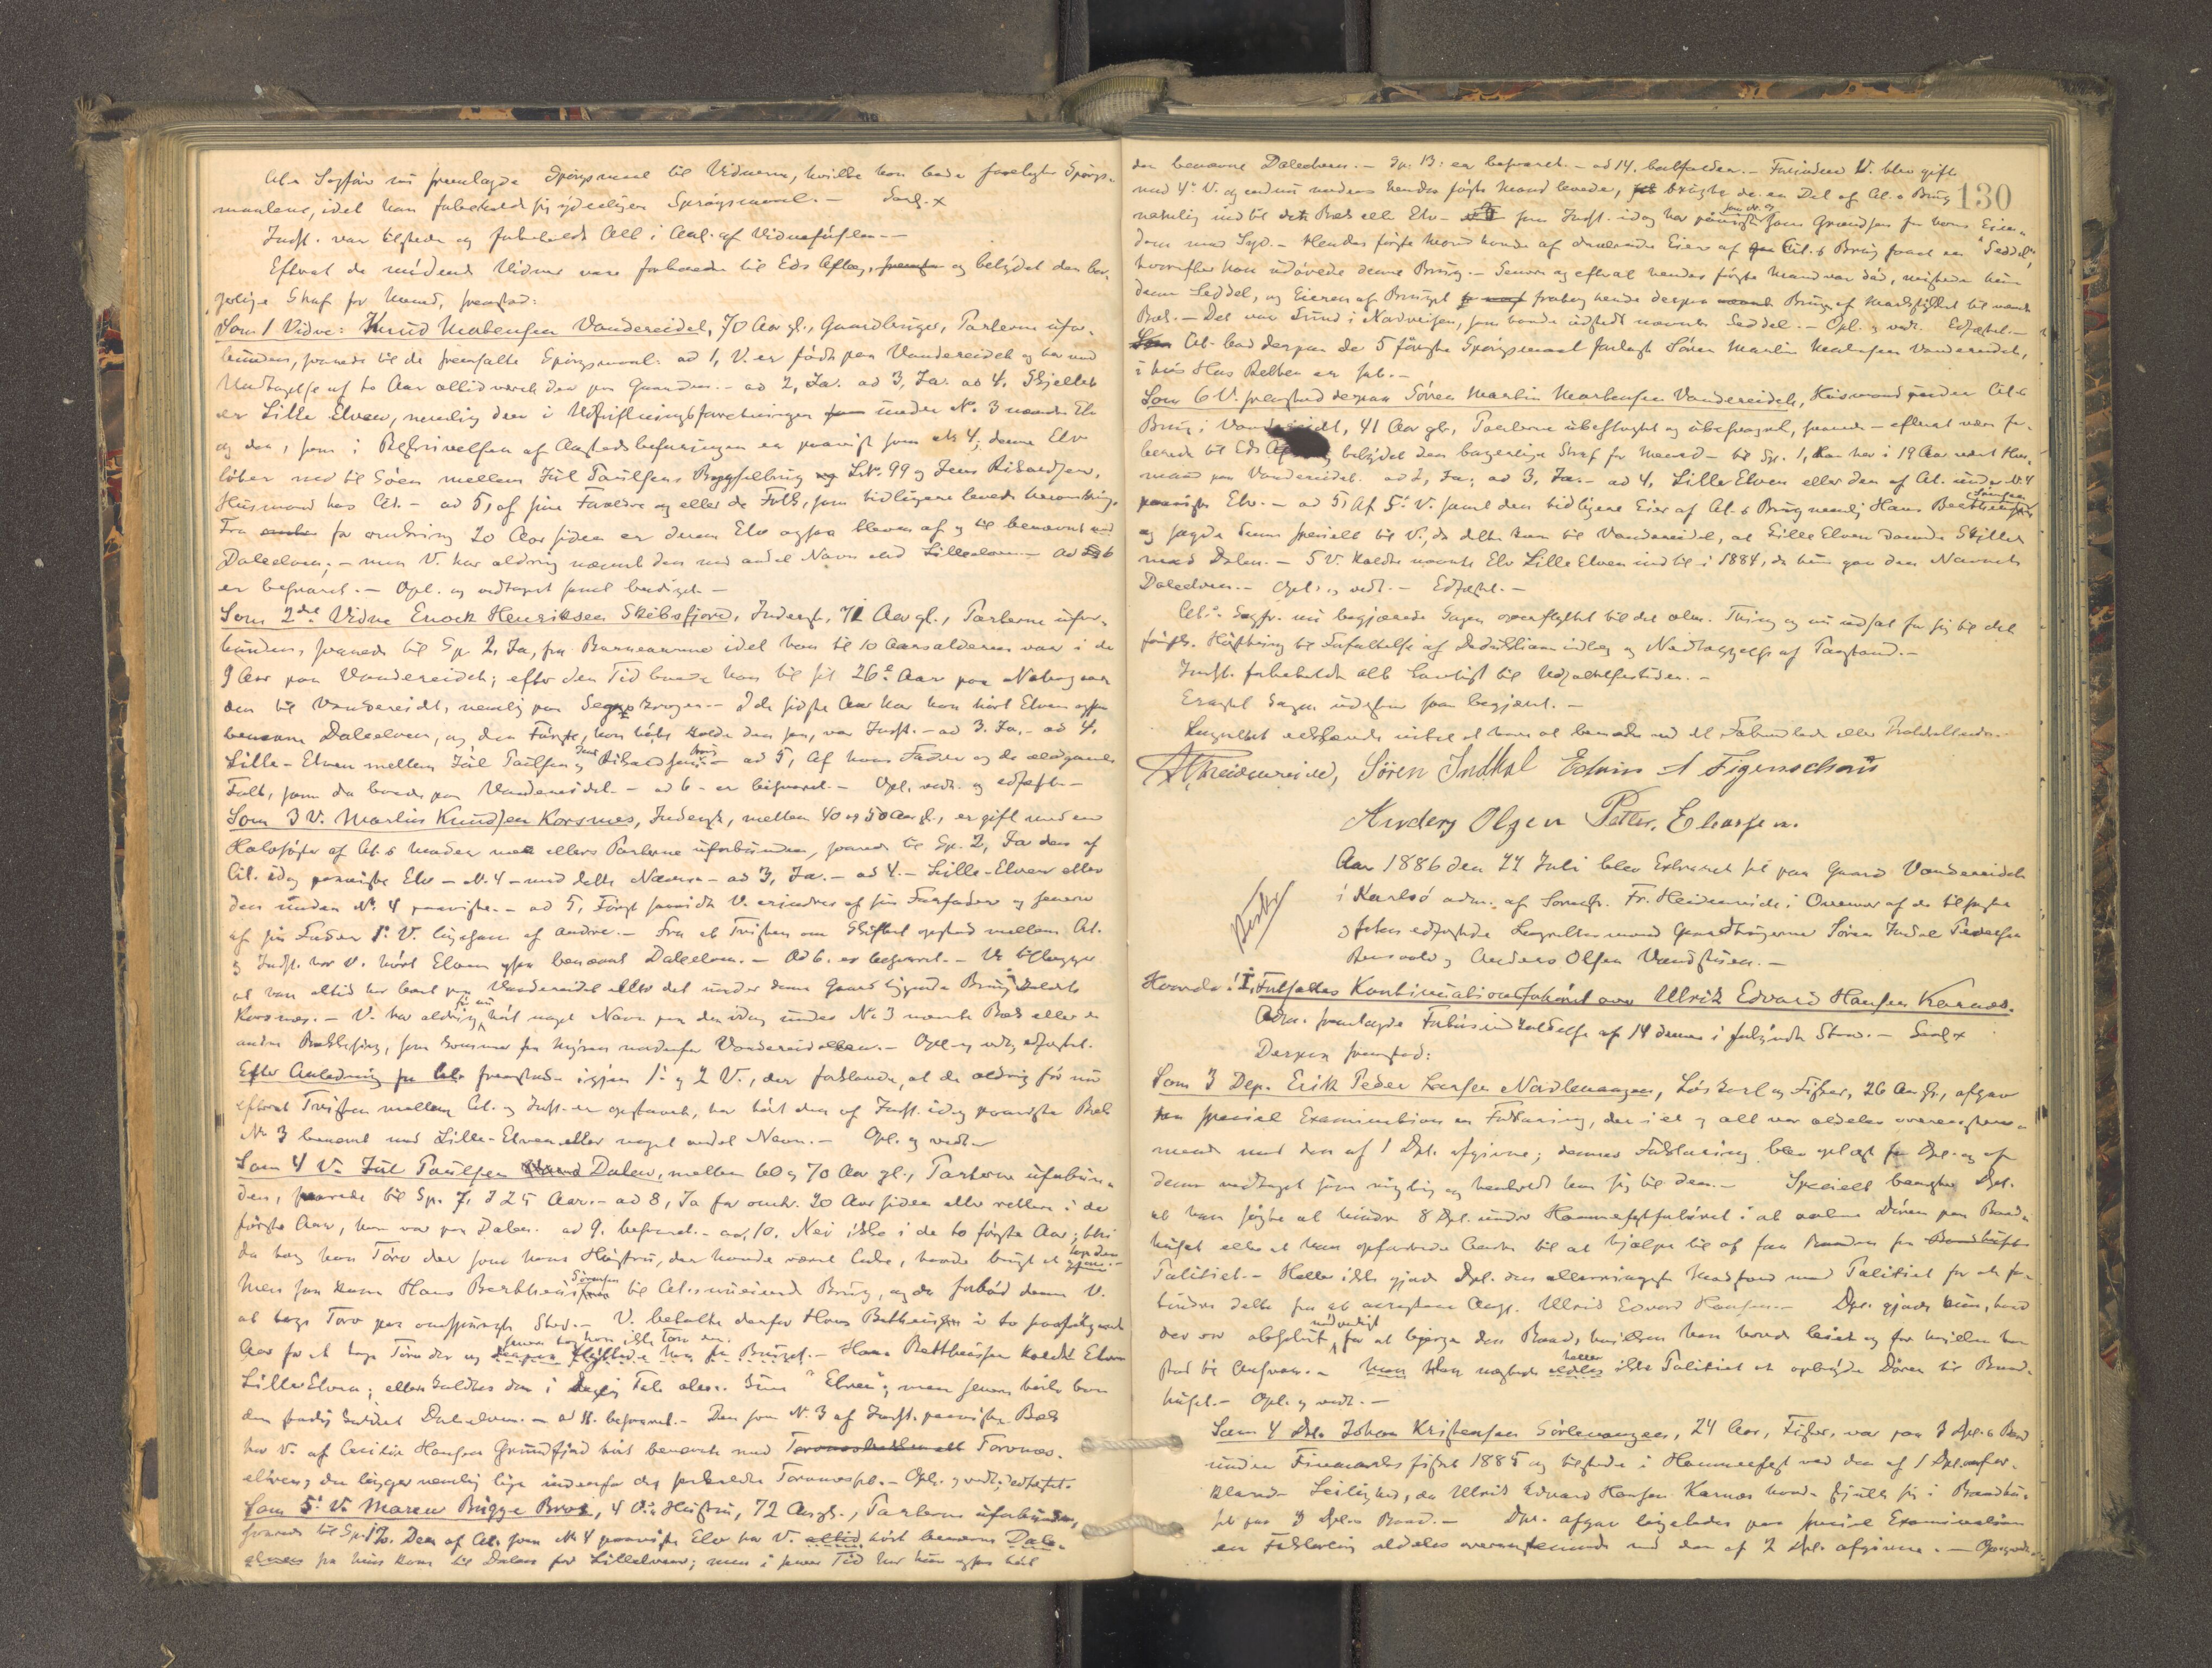 Cit.s Sagfører nu fremlagde Spørgsmaal til Vidnerne, hvilke han bad forelagte Spørgs-
maalene, idet han forbeholdt sig yderligere Spørgsmaal. —
Indst. var tilstede og forbeholdt Alt i Anl. af Vidneførslen. —
Efterat de mødende Vidner vare forberedte til Eds Aflæg, og betydet den bor-
gerlige Straf for Meened, fremstod:
Som 1 Vidne: Knud Mortensen Vandereidet, 70 Aar gl., Gaardbruger, Parterne ufor-
bunden, svarede til de fremsatte Spørgsmaal: ad 1, V. er født paa Vandereidet og har med
Undtagelse af to Aar altid været der paa Gaarden. — ad 2, Ja. ad 3, Ja. ad 4, Skjellet
er Lille Elven, nemlig den i Udskiftningsforretningen under No. 3 nævnte Elv
og den, som i Beskrivelsen af Aastedsbefaringen er paavist som No 4; denne Elv
løber ned til Søen mellem Jul Paulsens Bygselbrug LNo. 99 og Jens Rikardsen,
Husmand hos Cit. — ad 5, af sine Forældre og eller de Folk, som tidligere levede heromkring.
Fra for omkring 20 Aar siden er denne Elv ogsaa bleven af og til benævnt med
Daleelven; — men V. har aldrig nævnt den med andet Navn end Lilleelven — ad 6
er besvaret. — Opl. og vedtaget samt beediget. —
Som 2det Vidne Enock Henriksen Skibsfjord, Inderst, 71 Aar gl., Parterne ufor-
bunden, svarede til Sp. 2, Ja, fra Barneaarene idet han til 10 Aarsalderen var i de
9 Aar paa Vandereidet; efter den Tid boede han til sit 26de Aar paa Nabogaar-
den til Vandereidet, nemlig paa . — I de sidste Aar har han hørt Elven ogsaa
benævne Daleelven, og den Første, han hørte kalde den saa, var Indst. — ad 3. Ja. — ad 4,
Lille-Elven mellem Jul Paulsen og Jens Rikardsens Brug — ad 5, Af hans Fader og de ældgamle
Folk, som da boede paa Vandereidet. — ad 6 — er besvaret. — Opl. vedt. og edfæstet. —
Som 3 V. Martin Knudsen Korsnes, Inderst, mellem 40 og 50 Aar gl., er gift med en
Halvsøster af Cit.s Moder men ellers Parterne uforbunden, svarede til Sp. 2, Ja den af
Cit. idag paaviste Elv — No. 4 — med dette Navn — ad 3, Ja. — ad 4. — Lille-Elven eller
den under No. 4 paaviste. — ad 5, Først saavidt V. erindrer af sin Farfader og senere
af sin Fader 1ste V. ligesom af andre. — Fra at Tvisten om Skiftet opstod mellem Cit.
og Indst. har V. hørt Elven ogsaa benævnt Daleelven. — Ad 6. er besvaret. — V. tillægger
at han altid har boet paa Vandereidet eller det under denne Gaard liggende Brug kaldet
Korsnes. — V. har aldrig før nu hørt noget Navn paa den idag under No 3 nævnte Bæk eller en
anden Bæklesing, som kommer fra Myren nedenfor Vandereidelven. — Opl. og vedt., edfæstet.
Efter Anledning fra Cit. fremstod igjen 1ste og 2 V., der forklarede, at de aldrig før nu
efterat Tvisten mellem Cit. og Indst. er opstaaet, har hørt den af Indst. idag paaviste Bæk
No 3 benævnt med Lille-Elven eller noget andet Navn. — Opl. og vedt. —
Som 4 V. Jul Paulsen Dalen, mellem 60 og 70 Aar gl., Parterne uforbun-
den, svarede til Sp. 7, I 25 Aar. — ad 8, Ja for omtr. 20 Aar siden eller rettere i de
første Aar, han var paa Dalen. ad 9. besvaret. — ad 10. Nei ikke i de to første Aar; thi
da tog han Torv der som hans Hustru, der havde været Enke, havde brugt at
Men saa kom Hans Berthius Sørensen til Cit.s nuværende Brug, og da forbød denne V.
at tage Torv paa omspurgte Sted. — V. betalte derfor Hans Bertheus i to paafølgende
Aar for at tage Torv der og senere tog han ikke Torv der. — Hans Bertheusen kaldte Elven
Lille Elven; ellers kaldtes den i daglig Tale alene kun "Elven"; men senere hørte han
den stadig kaldet Daleelven. — ad 11. besvaret. — Den som No. 3 af Indst. paaviste Bæk
har V. af Cecilie Hansen Grundfjord hørt benævnt med Torvnes-
elven; den ligger nemlig lige indenfor det saakaldte . — Opl. og vedt.; edfæstet.
Som 5te V. Maren Brygge Bros, 4 V.s Hustru, 72 Aar gl., Parterne uforbunden,
svarede til Sp. 12. Den af Cit. som No 4 paaviste Elv har V. altid hørt benævne Dale-
elven fra hun kom til Dalen for Lilleelven; men i senere Tid har hun ogsaa hørt
130
den benævne Daleelven. — Sp. 13: er besvaret. — ad 14, bortfalder. — Forinden V. blev gift
med 4de V. og endnu medens hendes første Mand levede, brugte de en Del af Cit.s Brug
nemlig ind til det Bæk eller Elv — som Indst. idag har paavist som Grændsen for hans Eien-
dom mod Syd. — Hendes første Mand havde af daværende Eier af Cit.s Brug faaet en "Seddel",
hvorefter han udøvede denne Brug. — Senere og efterat hendes første Mand var død, mistede hun
denne Seddel, og Eieren af Bruget fratog hende derpaa Brug af Markstykket til nævnte
Bæk. — Det var Lund i Nordreisen, som havde udstedt nævnte Seddel. — Opl. og vedt. Edfæstet. —
Cit. bad derpaa de 5 første Spørgsmaal forelagt Søren Martin Mortensen Vandereidet,
i hvis Hus Retten er sat. —
Som 6 V. fremstod derpaa Søren Martin Mortensen Vandereidet, Husmand under Cit.s
Brug i Vandereidet, 41 Aar gl., Parterne ubeslægtet og ubesvogret, svarede — efterat være for-
beredt til Eds og betydet den borgerlige Straf for Meened — til Sp. 1, Han har i 19 Aar været Hus-
mand paa Vandereidet. ad 2, Ja; ad 3, Ja. — ad 4, Lille Elven eller den af Cit. under No. 4
paaviste Elv. — ad 5, Af 5te V. samt den tidligere Eier af Cit.s Brug nemlig Hans Bertheus Sørensen
og sagde denne specielt til V., da dette kom til Vandereidet, at Lille Elven dannede Skillet
mod Dalen. — 5 V. kaldte nævnte Elv Lille Elven indtil i 1884, da hun gav den Navnet
Daleelven. — Opl. og vedt. — Edfæstet. —
Cit.s Sagfr. nu begjærede Sagen overflyttet til det alm. Thing og nu udsat for sig til det
førstk. Høstthing til Forfattelse af Deduktionsindlæg og Nedlæggelse af Paastand. —
Indst. forbeholdt alt Lovligt til Udsættelsestiden. —
Eragtet Sagen udsættes som begjært. —
Laugrettet erklærede intet at have at bemærke ved det Foranstaaende eller Protokollerede.
Fr. Heidenreich, Søren Indkel Edvin A Figenschou
Anders Olsen Petter. Eliassen.
Aar 1886 den 27 Juli blev Extraret sat paa Gaard Vandereidet
i Karlsø adm. af Sorenskr. Fr. Heidenreich i Overvær af de tilsagte
og forhen edfæstede Laugrettesmænd Gaardbrugerne Søren Indal Pedersen
og Anders Olsen Vandstuen. —
Hvorda: I, Fortsattes Kontinuationsforhøret over Ulrik Edvard Hansen Karnæs.
Adm. fremlagde Forhørsindkaldelse af 14 dennes i forkyndt Stand. —
Derpaa fremstod:
Som 3 Dep. Erik Peder Larsen Nordlenangen, Løskarl og Fisker, 26 Aar gl., afgav
paa speciel Examination en Forklaring, der i et og alt var aldeles overensstem-
mende med den af 1 Dpt. afgivne; dennes Forklaring blev oplæst for Dpt. og af
denne vedtaget som rigtig og henholdt han sig til den. — Specielt benægter Dpt.
at han søgte at hindre 8 Dpt. under Hammerfestforhøret i at aabne Døren paa Baad-
huset eller at han opfordrede Andre til at hjælpe til at faa Baaden fra
Politiet. — Heller ikke gjorde Dpt. den allerringeste Modstand mod Politiet for at for-
hindre dette fra at arrestere Ang. Ulrik Edvard Hansen. — Dpt. gjorde kun, hvad
der var absolut nødvendigt for at bjerge den Baad, hvilken han havde leiet og for hvilken han
stod til Ansvar. — Han nægtede heller ikke Politiet at opbryde Døren til Baad-
huset. — Opl. og vedt. —
Som 4 Dpt. Johan Kristensen Sørlenangen, 24 Aar, Fisker, var paa 3 Dpt.s Baad
under Finmarksfisket 1885 og tilstede i Hammerfest ved den af 1 Dpt. omfor-
klarede Leilighed, da Ulrik Edvard Hansen Karnæs havde skjult sig i Baadhu-
set paa 3 Dpt.s Baad. — Dpt. afgav ligeledes paa speciel Examination
en Forklaring aldeles overensstemmende med den af 2 Dpt. afgivne. — Op. og vedt.